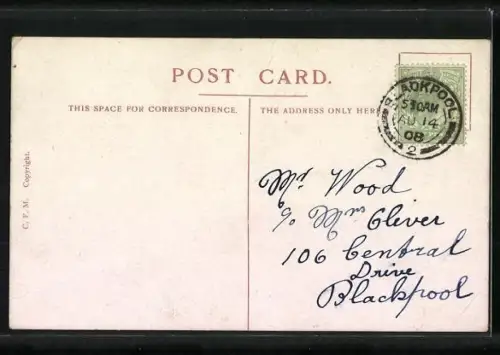 POST CARD.
THIS SPACE FOR CORRESPONDENCE.
THE ADDRESS ONLY HERE
BLACKPOOL
5 30 AM
AU 14
08
2
Mr Wood
c/o Mrs Cliver
106 Central
Drive
Blackpool
C. F. M. Copyright.